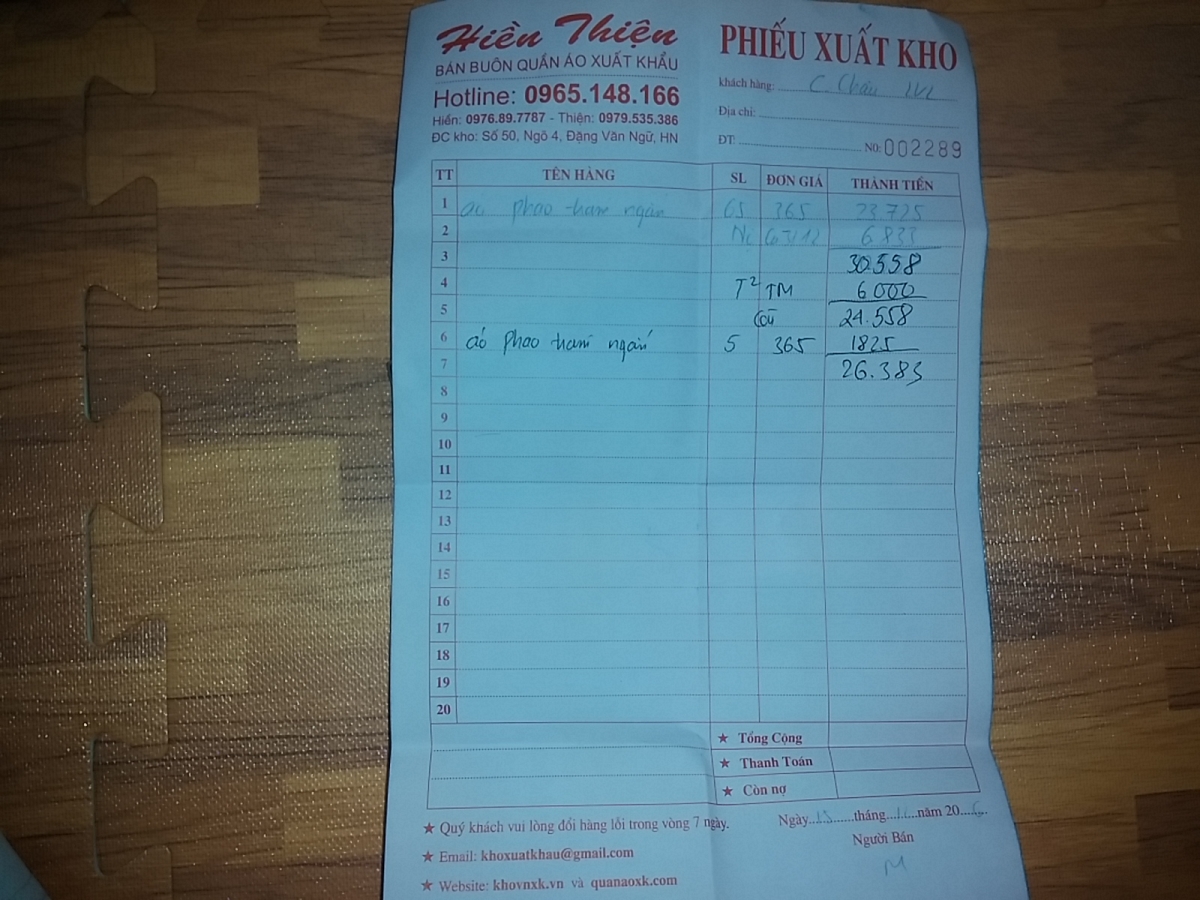 Hiền Thiện
BÁN BUÔN QUẦN ÁO XUẤT KHẨU
Hotline: 0965.148.166
Hiền: 0976.89.7787 - Thiện: 0979.535.386
ĐC kho: Số 50, Ngõ 4, Đặng Văn Ngữ, HN
PHIẾU XUẤT KHO
khách hàng: C Châu
Địa chỉ:
ĐT: N0: 002289
TT TÊN HÀNG SL ĐƠN GIÁ THÀNH TIỀN
1 áo phao ngắn 65 365 23.725
2 Nc 6.833
3 30.558
4 T2 TM 6000
5 24.558
6 áo phao ngắn 5 365 1825
7 26.383
8
9
10
11
12
13
14
15
16
17
18
19
20
★ Tổng Cộng
★ Thanh Toán
★ Còn nợ
★ Quý khách vui lòng đổi hàng lỗi trong vòng 7 ngày.
★ Email: khoxuatkhau@gmail.com
★ Website: khovnxk.vn và quanaoxk.com
Ngày 13 tháng năm 20
Người Bán